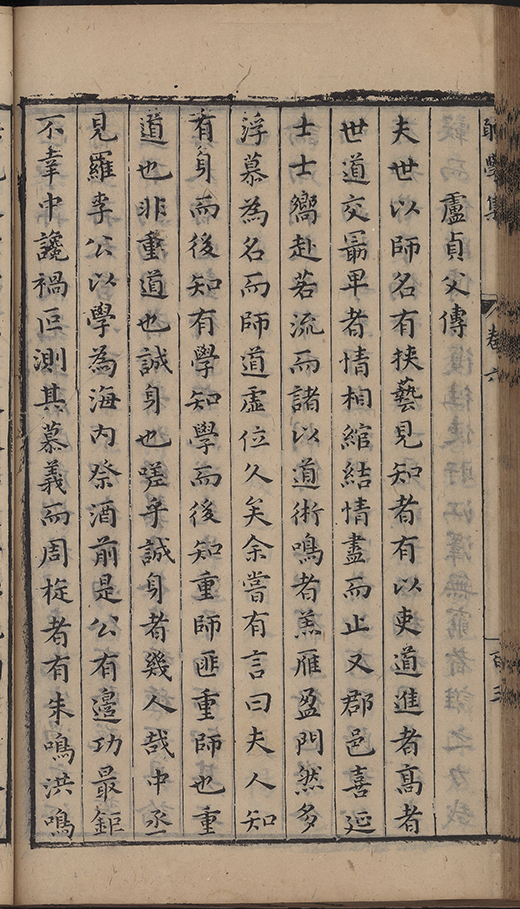 學集 卷六
盧貞父傳
夫世以師名有挾藝見知者有以吏道進者高者
世道交最卑者情相綰結情盡而止又郡邑喜延
士士嚮赴若流而諸以道術鳴者羔雁盈門然多
浮慕為名而師道虛位久矣余嘗有言曰夫人知
有身而後知有學知學而後知重師匪重師也重
道也非重道也誠身也嗟乎誠身者幾人哉中丞
見羅李公以學為海內祭酒前是公有邊功最鉅
不幸中讒禍叵測其慕義而周旋者有朱鳴洪鳴